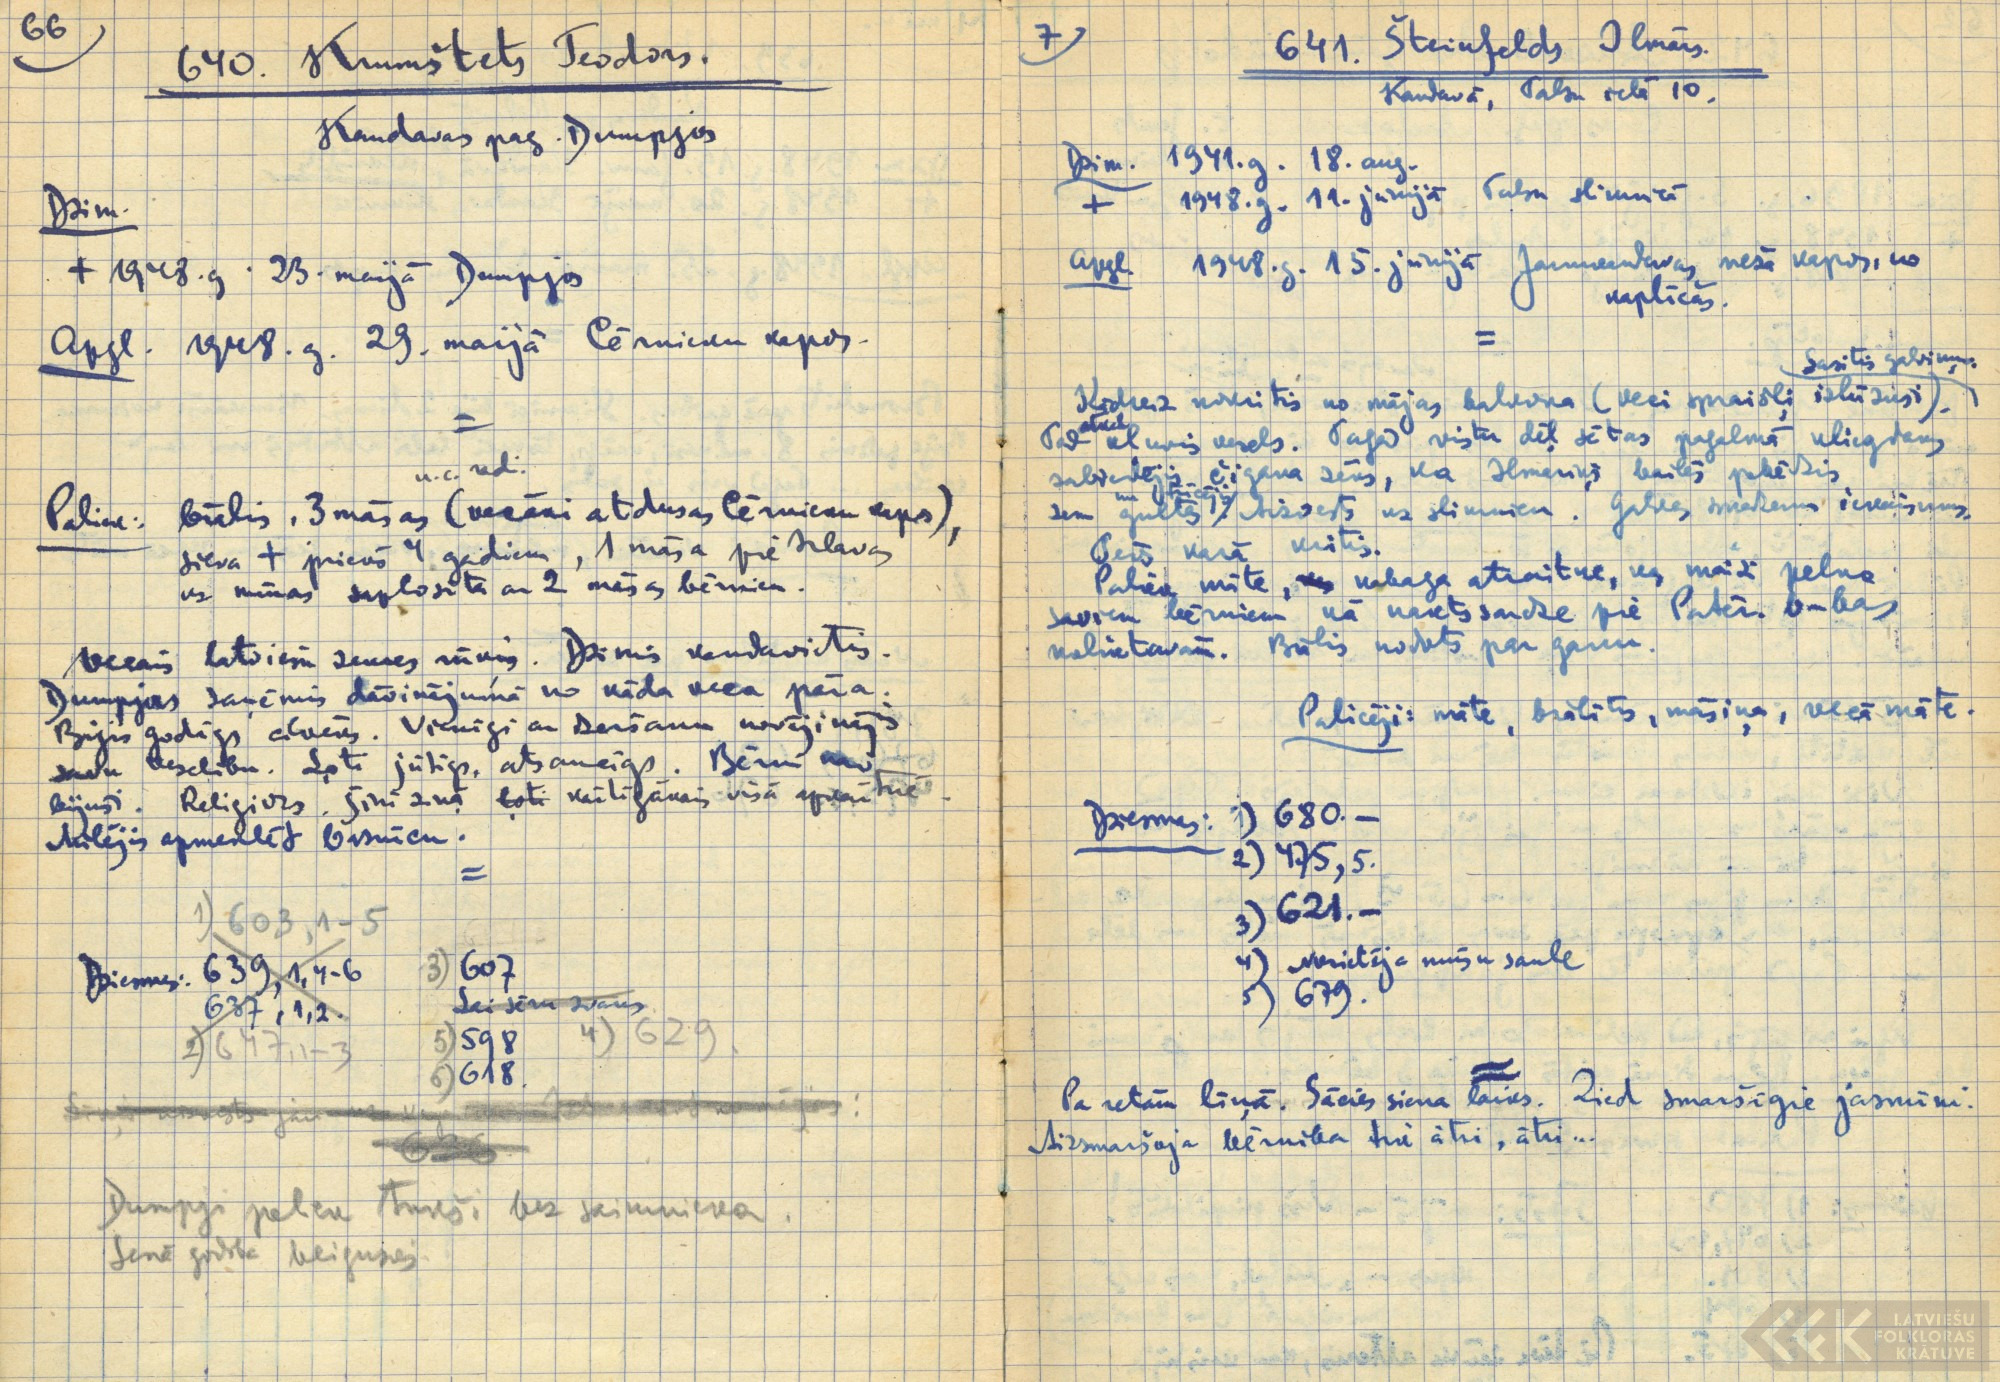 66
640. Krumštets Teodors.
Kandavas pag. Dumpjos
Dzim.
+ 1948.g. 23. maijā Dumpjos
Apgl. 1948.g. 29. maijā Cērnieku kapos.
=
u.c. rad.
Paliek: brālis, 3 māsas (vecāki atdusas Cērnieku kapos),
sieva + pirms 4 gadiem, 1 māsa pie
uz mīnas saplosīta ar 2 māsas bērniem.
Vecais latviešu zemes rūķis. Dzimis kandavietis.
Dumpjos saņēmis dāvinājumā no kāda veca pāra.
Bijis godīgs cilvēks. Vienīgi ar dzeršanu novājinājis
savu veselību. Ļoti jūtīgs, atsaucīgs. Bērni nav
bijuši. Religiozs, šinī ziņā ļoti kārtīgākais visā apkaitnē.
Mīlējis apmeklēt baznīcu.
=
1) 603, 1-5
Dziesmas: 639, 1,4-6
637, 1,2.
2) 647, 1-3
3) 607
Lai sēru zvans
5) 598 4) 629.
6) 618.
Dumpji paliek tukši bez saimnieka.
Senā godība beigusies.
7
641. Šteinfelds Ilmārs.
Kandavā, Talsu ielā 10.
Dzim. 1941.g. 18. aug.
+ 1948.g. 11. jūnijā Talsu slimnīcā
Apgl. 1948.g. 15. jūnijā Jaunkandavas mežā kapos, no
kaplīcas.
=
Sasitis galviņu.
Kādreiz nokritis no mājas balkona (veci spraišļi izlūzuši).
Tad atkal kļuvis vesels. Tagad vistu dēļ sētas pagalmā kliegdams
sabiedējis čigāna zēns, ka Ilmāriņš bailēs pabēdzis
zem gultas. Aizvests uz slimnīcu. Galvas smadzeņu iekaisums.
Tēvs karā kritis.
Paliek māte, nabaga atraitne, kas maizi pelna
saviem bērniem kā naktssardze pie Patēr. b-bas
noliktavām. Brālis nodots par ganu.
Palicēji: māte, brālītis, māsiņa, vecā māte.
Dziesmas: 1) 680.-
2) 475, 5.
3) 621.-
4) Norietēja mūsu saule
5) 679.
=
Pa retam līņā. Sācies siena laiks. Zied smaršīgie jasmīni.
Aizsmaršoja bērnība tik ātri, ātri...
LATVIEŠU
FOLKLORAS
KRĀTUVE